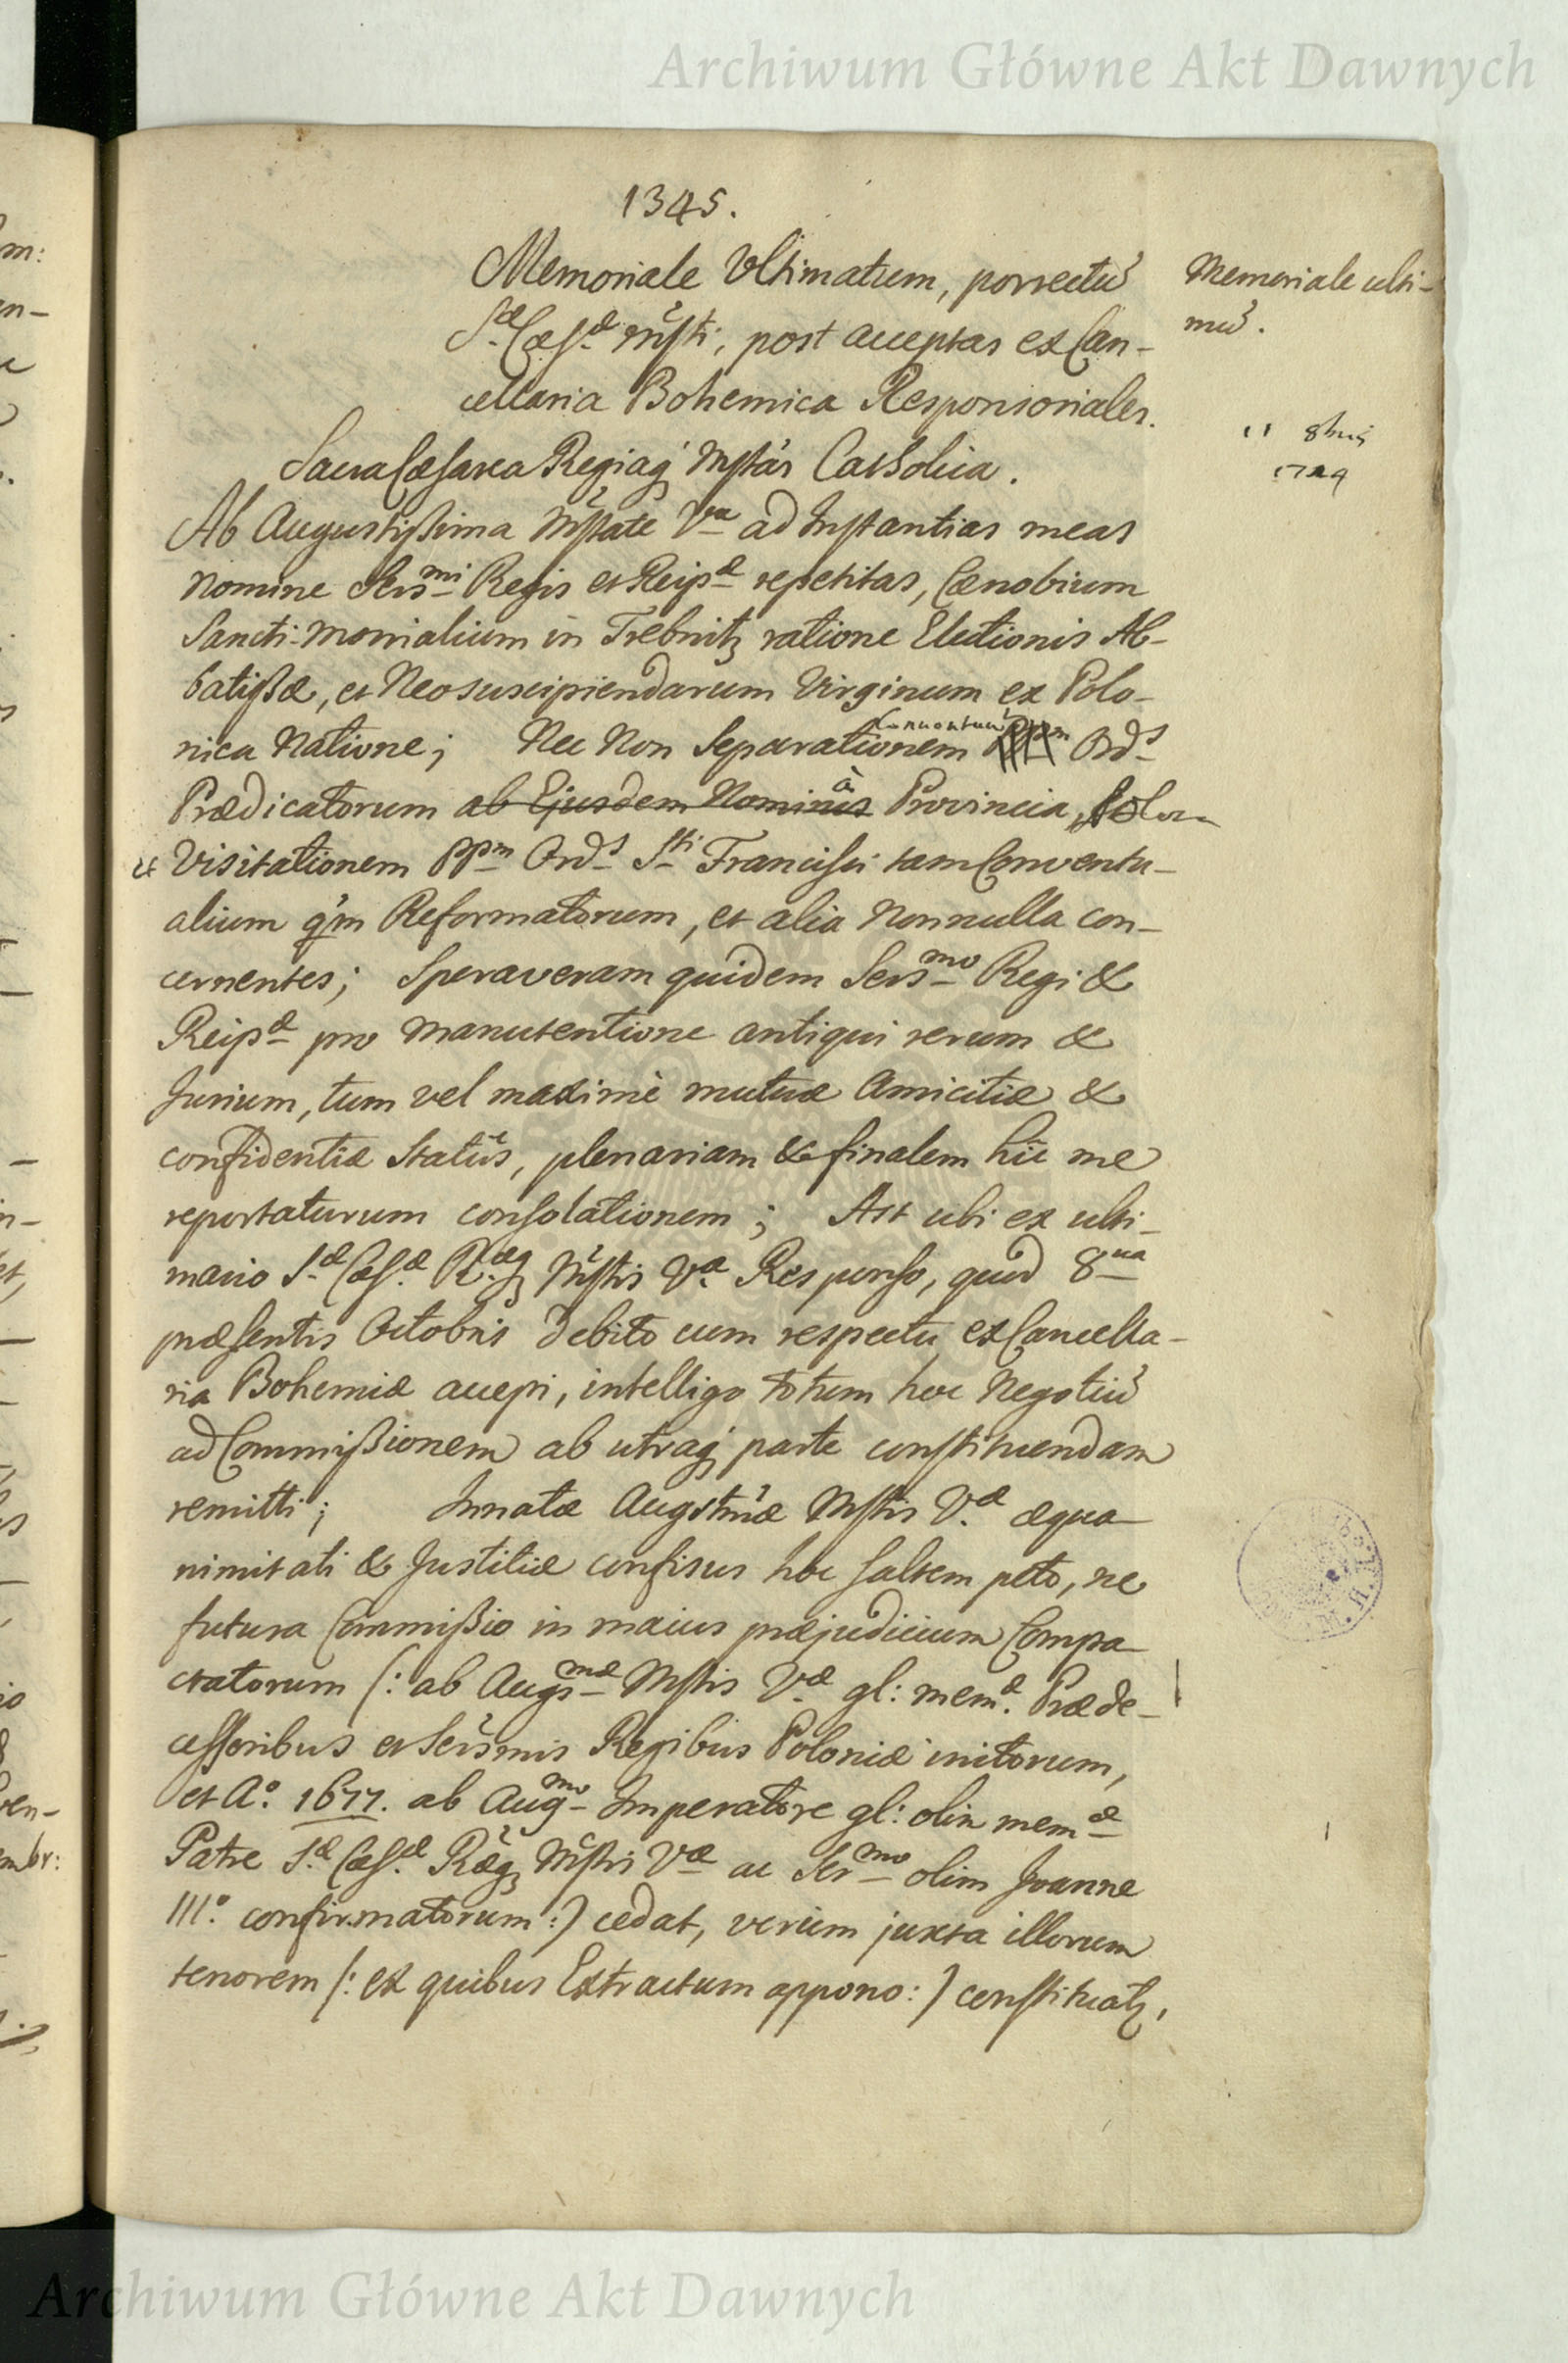 Archiwum Główne Akt Dawnych
1345.
Memoriale Ultimatum, porrectũ
Sæ Cæsæ Mſti, post acceptas ex Can-
cellaria Bohemica Responsoriales.
Memoriale ulti-
mũ.
11 8bris
1729
Sacra Cæsarea Regiaq Mſtas Catholica.
Ab Augustißima Mſtate Vra ad Inſtantias meas
Nomine Sersmi Regis et Reipæ repetitas, Cænobium
Sancti-monialium in Trebnitz ratione Electionis Ab-
batißæ, et Neosuscipiendarum Virginum ex Polo-
nica Natione; Nec Non Separationem Conventuũ Ords
Prædicatorum ab Ejusdem Nominis à Provincia Polona
et Visitationem PPum Ords Sti Franciſci tam Conventu-
alium qm Reformatorum, et alia Nonnulla con-
cernentes; Speraveram quidem Sersmo Regi &
Reipæ pro manutentione antiqui rerum &
Jurium, tum vel maximè mutuæ Amicitiæ &
confidentiæ Statûs, plenariam & finalem hic me
reportaturum conſolationem; Ast ubi ex ulti-
mario Sæ Cæſæ Ræq Mſtis Væ Responſo, quod 8va
præſentis Octobris debito cum respectu ex Cancella-
ria Bohemiæ accepi, intelligo totum hoc Negotiũ
ad Commißionem ab utraq parte conſtituendam
remitti; Innatæ Augstmæ Mſtis Væ æqua-
nimitati & Justitiæ confisus hoc ſaltem peto, ne
futura Commißio in maius præjudicium Compa-
ctatorum (: ab Augsmæ Mſtis Væ gl: memæ Præde-
ceſſoribus et Sersmis Regibus Poloniæ initorum,
et Ao. 1677. ab Augmo Imperatore gl: olim memæ
Patre Sæ Cæſæ Ræq Mſtis Væ ac Sermo olim Joanne
IIIo. confirmatorum :) cedat, verùm juxta illorum
tenorem (: ex quibus Extractum appono :) conſtituatz,
Archiwum Główne Akt Dawnych